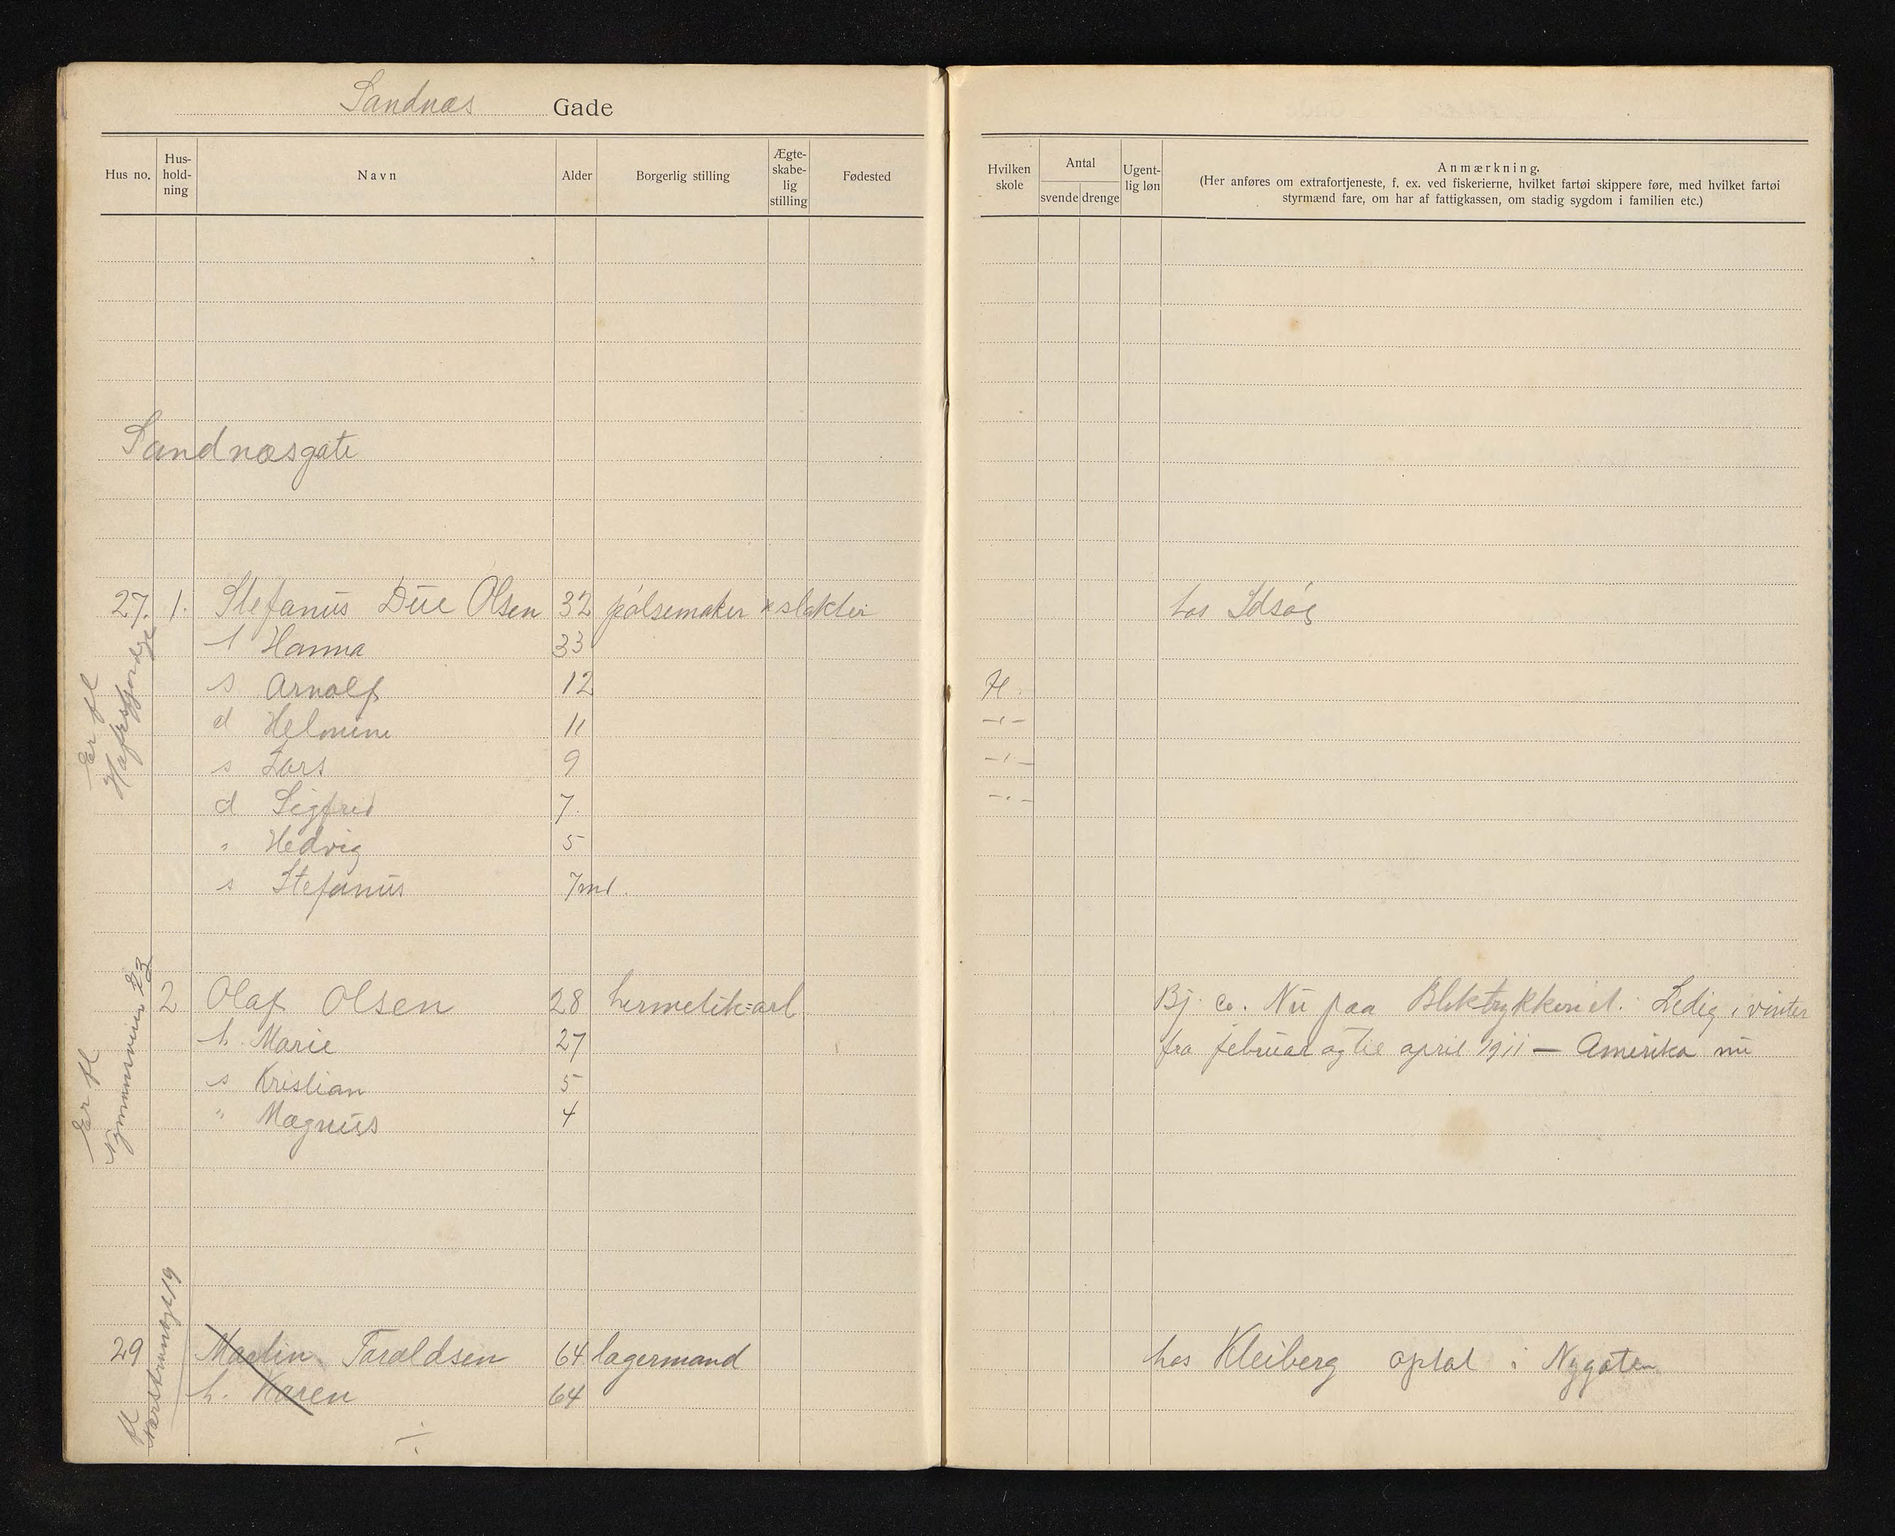 Sandnæs Gade
Hus no. Hus-hold-ning Navn Alder Borgerlig stilling Ægte-skabe-lig stilling Fødested
Hvilken skole Antal svende drenge Ugent-lig løn Anmærkning.
(Her anføres om extrafortjeneste, f. ex. ved fiskerierne, hvilket fartøi skippere føre, med hvilket fartøi
styrmænd fare, om har af fattigkassen, om stadig sygdom i familien etc.)
Sandnæsgate
27. 1. Stefanus Due Olsen 32 pølsemaker & slakter hos Idsøe
h Hanna 33
s Arnolf 12 H.
d Helmine 11 -"-
s Lars 9 -"-
d Sigfrid 7. -"-
" Hedvig 5
s Stefanus 7md.
Er fl
Hafrsfjordg
2 Olaf Olsen 28 hermetik=arb. Bj. co. Nu paa Bliktrykkeriet. Ledig i vinter
h. Marie 27 fra februar og til april 1911 — Amerika nu
s Kristian 5
" Magnus 4
Er fl
29 Martin Taraldsen 64 lagermand hos Kleiberg opsat i Nygaten
h. Karen 64
fl